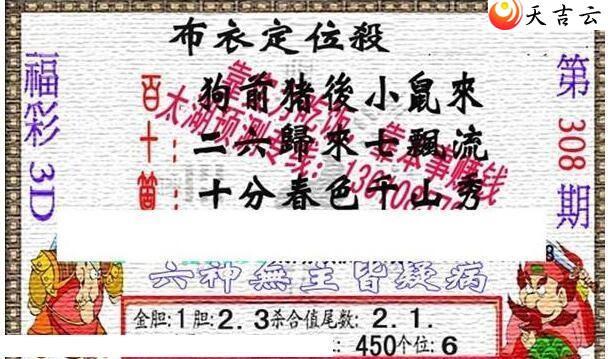 天吉云
布衣定位殺
福彩3D
第308期
百: 狗前猪後小鼠來
十: 二六歸來七飄流
個: 十分春色千山秀
靠本事赚钱
太湖预测专线:
六神無主皆疑病
金胆:1胆:2.3杀合值尾数:2.1.
:450个位:6